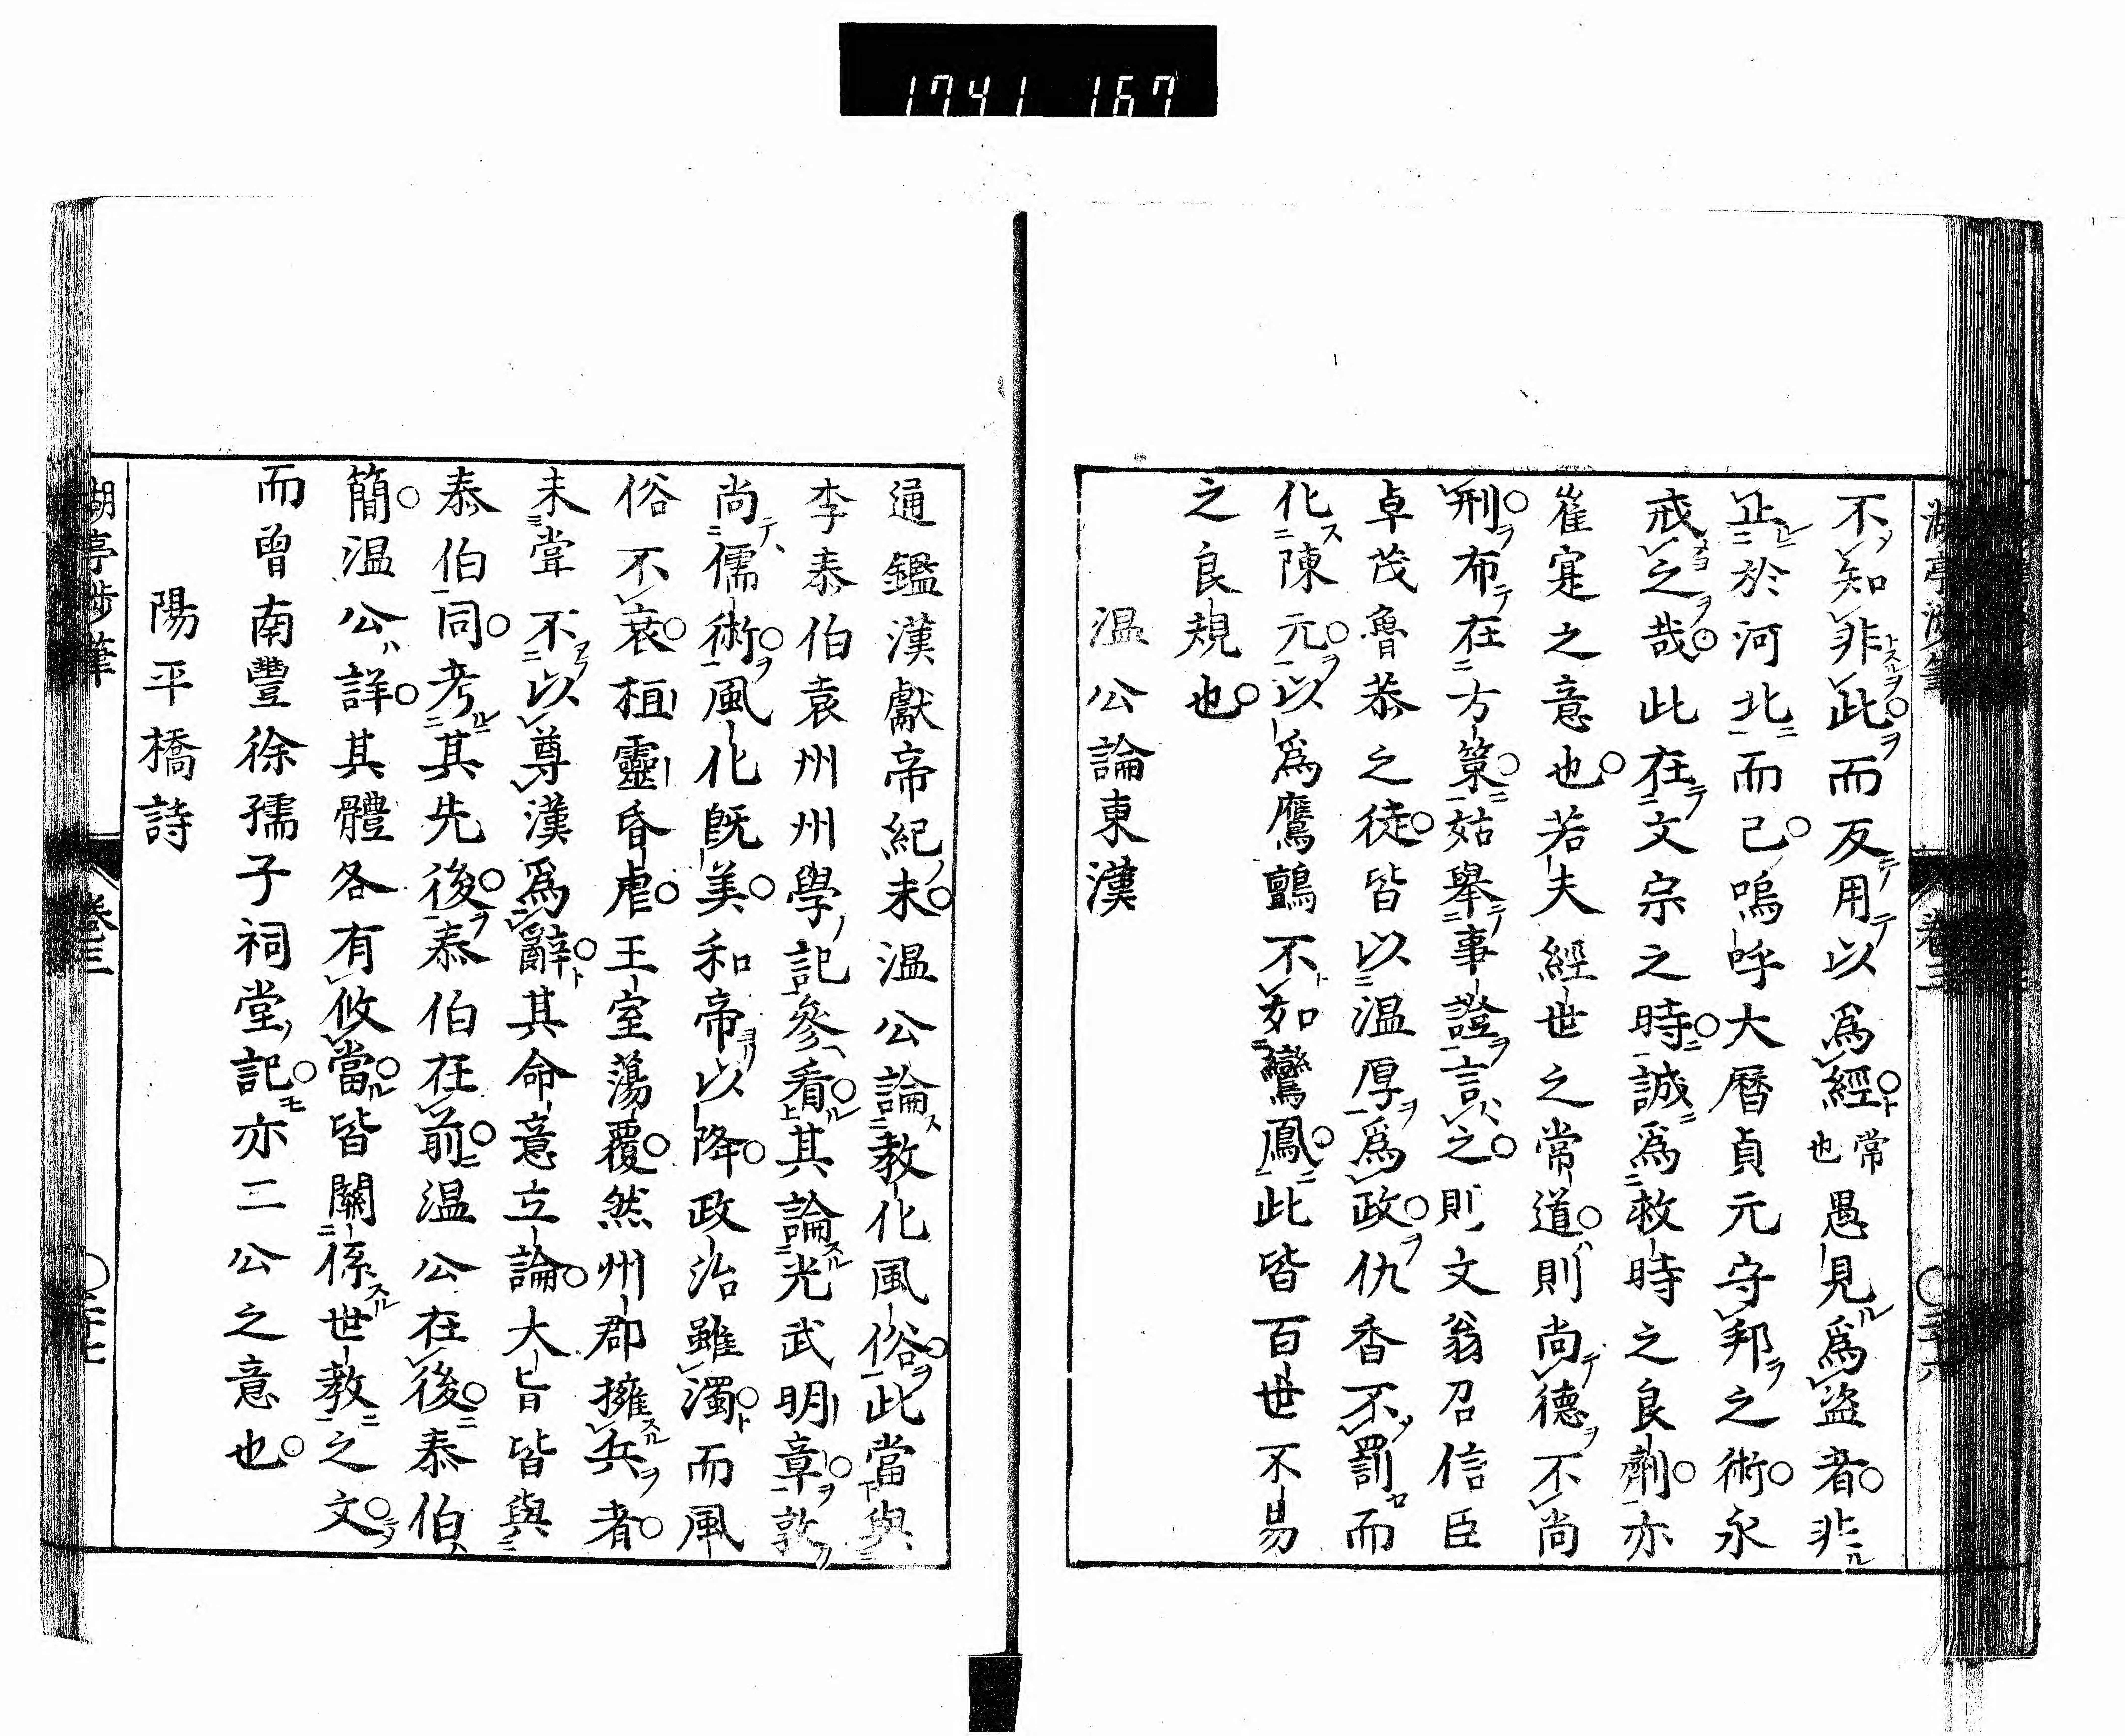 1741 167
不知非此而反用以爲經常也愚見爲盜者非
止於河北而已嗚呼大曆貞元守邦之術永
戒之哉此在文宗之時誠爲救時之良劑亦
崔寔之意也若夫經世之常道則尚德不尚
刑布在方策姑舉事證言之則文翁召信臣
卓茂魯恭之徒皆以温厚爲政仇香不罰而
化陳元以爲鷹鸇不如鸞鳳此皆百世不易
之良規也
温公論東漢
通鑑漢獻帝紀末温公論教化風俗此當與
李泰伯袁州州學記參看其論光武明章敦
尚儒術風化既美和帝以降政治雖濁而風
俗不衰桓靈昏虐王室蕩覆然州郡擁兵者
未甞不以尊漢爲辭其命意立論大旨皆與
泰伯同考其先後泰伯在前温公在後泰伯
簡温公詳其體各有攸當皆關係世教之文
而曾南豐徐孺子祠堂記亦二公之意也
陽平橋詩
湖亭涉筆
卷三